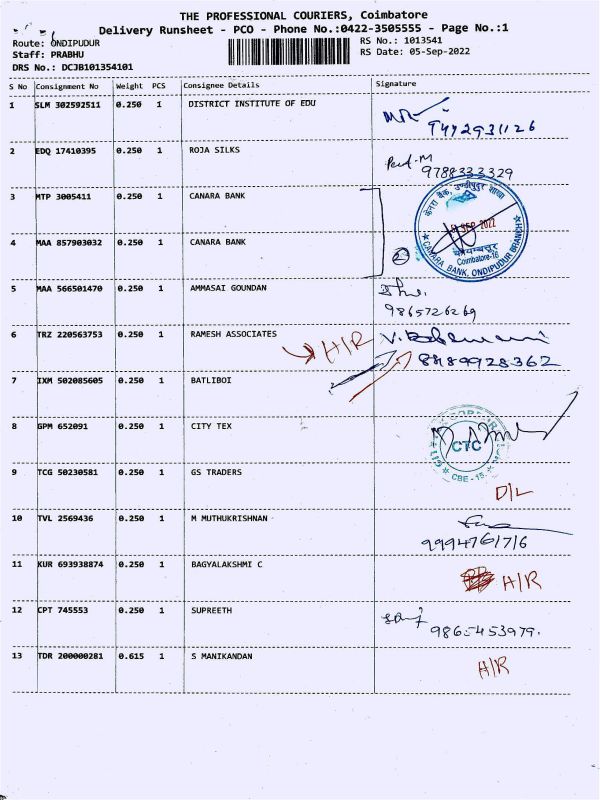 THE PROFESSIONAL COURIERS, Coimbatore
Delivery Runsheet - PCO - Phone No.:0422-3505555 - Page No.:1
Route: ONDIPUDUR
RS No.: 1013541
Staff: PRABHU
RS Date: 05-Sep-2022
DRS No.: DCJB101354101
S No Consignment No Weight PCS Consignee Details Signature
1 SLM 302592511 0.250 1 DISTRICT INSTITUTE OF EDU
9442931126
2 EDQ 17410395 0.250 1 ROJA SILKS
9788333329
3 MTP 3005411 0.250 1 CANARA BANK
केनरा बैंक, उण्डीपुदूर शाखा
SEP 2022
4 MAA 857903032 0.250 1 CANARA BANK
2
कोयम्बत्तूर
Coimbatore-16
CANARA BANK, ONDIPUDUR BRANCH
5 MAA 566501470 0.250 1 AMMASAI GOUNDAN
9865726269
6 TRZ 220563753 0.250 1 RAMESH ASSOCIATES
H/R
8489928362
7 IXM 502085605 0.250 1 BATLIBOI
8 GPM 652091 0.250 1 CITY TEX
CTC
CBE - 15
9 TCG 50230581 0.250 1 GS TRADERS
D/L
10 TVL 2569436 0.250 1 M MUTHUKRISHNAN
9994761716
11 KUR 693938874 0.250 1 BAGYALAKSHMI C
H/R
12 CPT 745553 0.250 1 SUPREETH
9865453979.
13 TDR 200000281 0.615 1 S MANIKANDAN
H/R